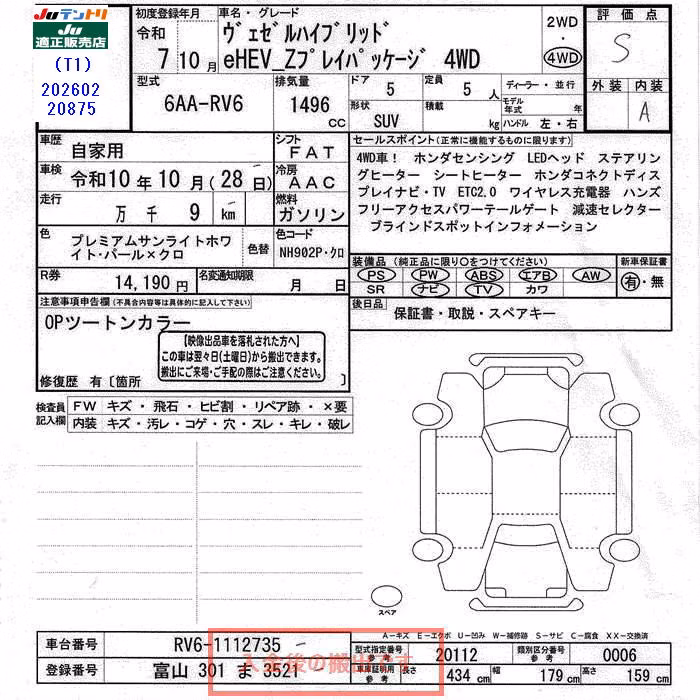 Juテントリ
Ju
適正販売店
(T1)
202602
20875
初度登録年月
令和
7 10 月
車名・グレード
ヴェゼルハイブリッド
eHEV_Zプレイパッケージ 4WD
2WD
・
4WD
評価点
S
外装 内装
A
型式
6AA-RV6
排気量
1496
CC
ドア
5
定員
5 人
形状
SUV
積載
kg
ディーラー・並行
モデル年式 年
ハンドル 左・右
車歴
自家用
シフト
FAT
車検
令和10 年 10 月 ( 28 日)
冷房
AAC
走行
万 千 9 km
燃料
ガソリン
色
プレミアムサンライトホワ
イト・パール×クロ
色替
色コード
NH902P・クロ
R券
14,190 円
名変通知期限
月 日
セールスポイント(正常に機能するものに限ります)
4WD車! ホンダセンシング LEDヘッド ステアリン
グヒーター シートヒーター ホンダコネクトディス
プレイナビ・TV ETC2.0 ワイヤレス充電器 ハンズ
フリーアクセスパワーテールゲート 減速セレクター
ブラインドスポットインフォメーション
装備品 (純正品に限り○をつけてください)
PS PW ABS エアB AW
SR ナビ TV カワ
新車保証書
有・無
後日品
保証書・取説・スペアキー
注意事項申告欄(不具合内容等は具体的に記入して下さい)
OPツートンカラー
【映像出品車を落札された方へ】
この車は翌々日(土曜日)から搬出できます。
搬出にご来場・ご手配の際はご注意ください。
修復歴 有〔箇所 〕
検査員
記入欄
FW キズ・飛石・ヒビ割・リペア跡・×要
内装 キズ・汚レ・コゲ・穴・スレ・キレ・破レ
スペア
A－キズ E－エクボ U－凹み W－補修跡 S－サビ C－腐食 XX－交換済
車台番号
RV6-1112735
登録番号
富山 301 ま 3521
入金後の搬出です
型式指定番号
参考
20112
類別区分番号
参考
0006
車庫証明用
参考
長さ
434 cm
幅
179 cm
高さ
159 cm